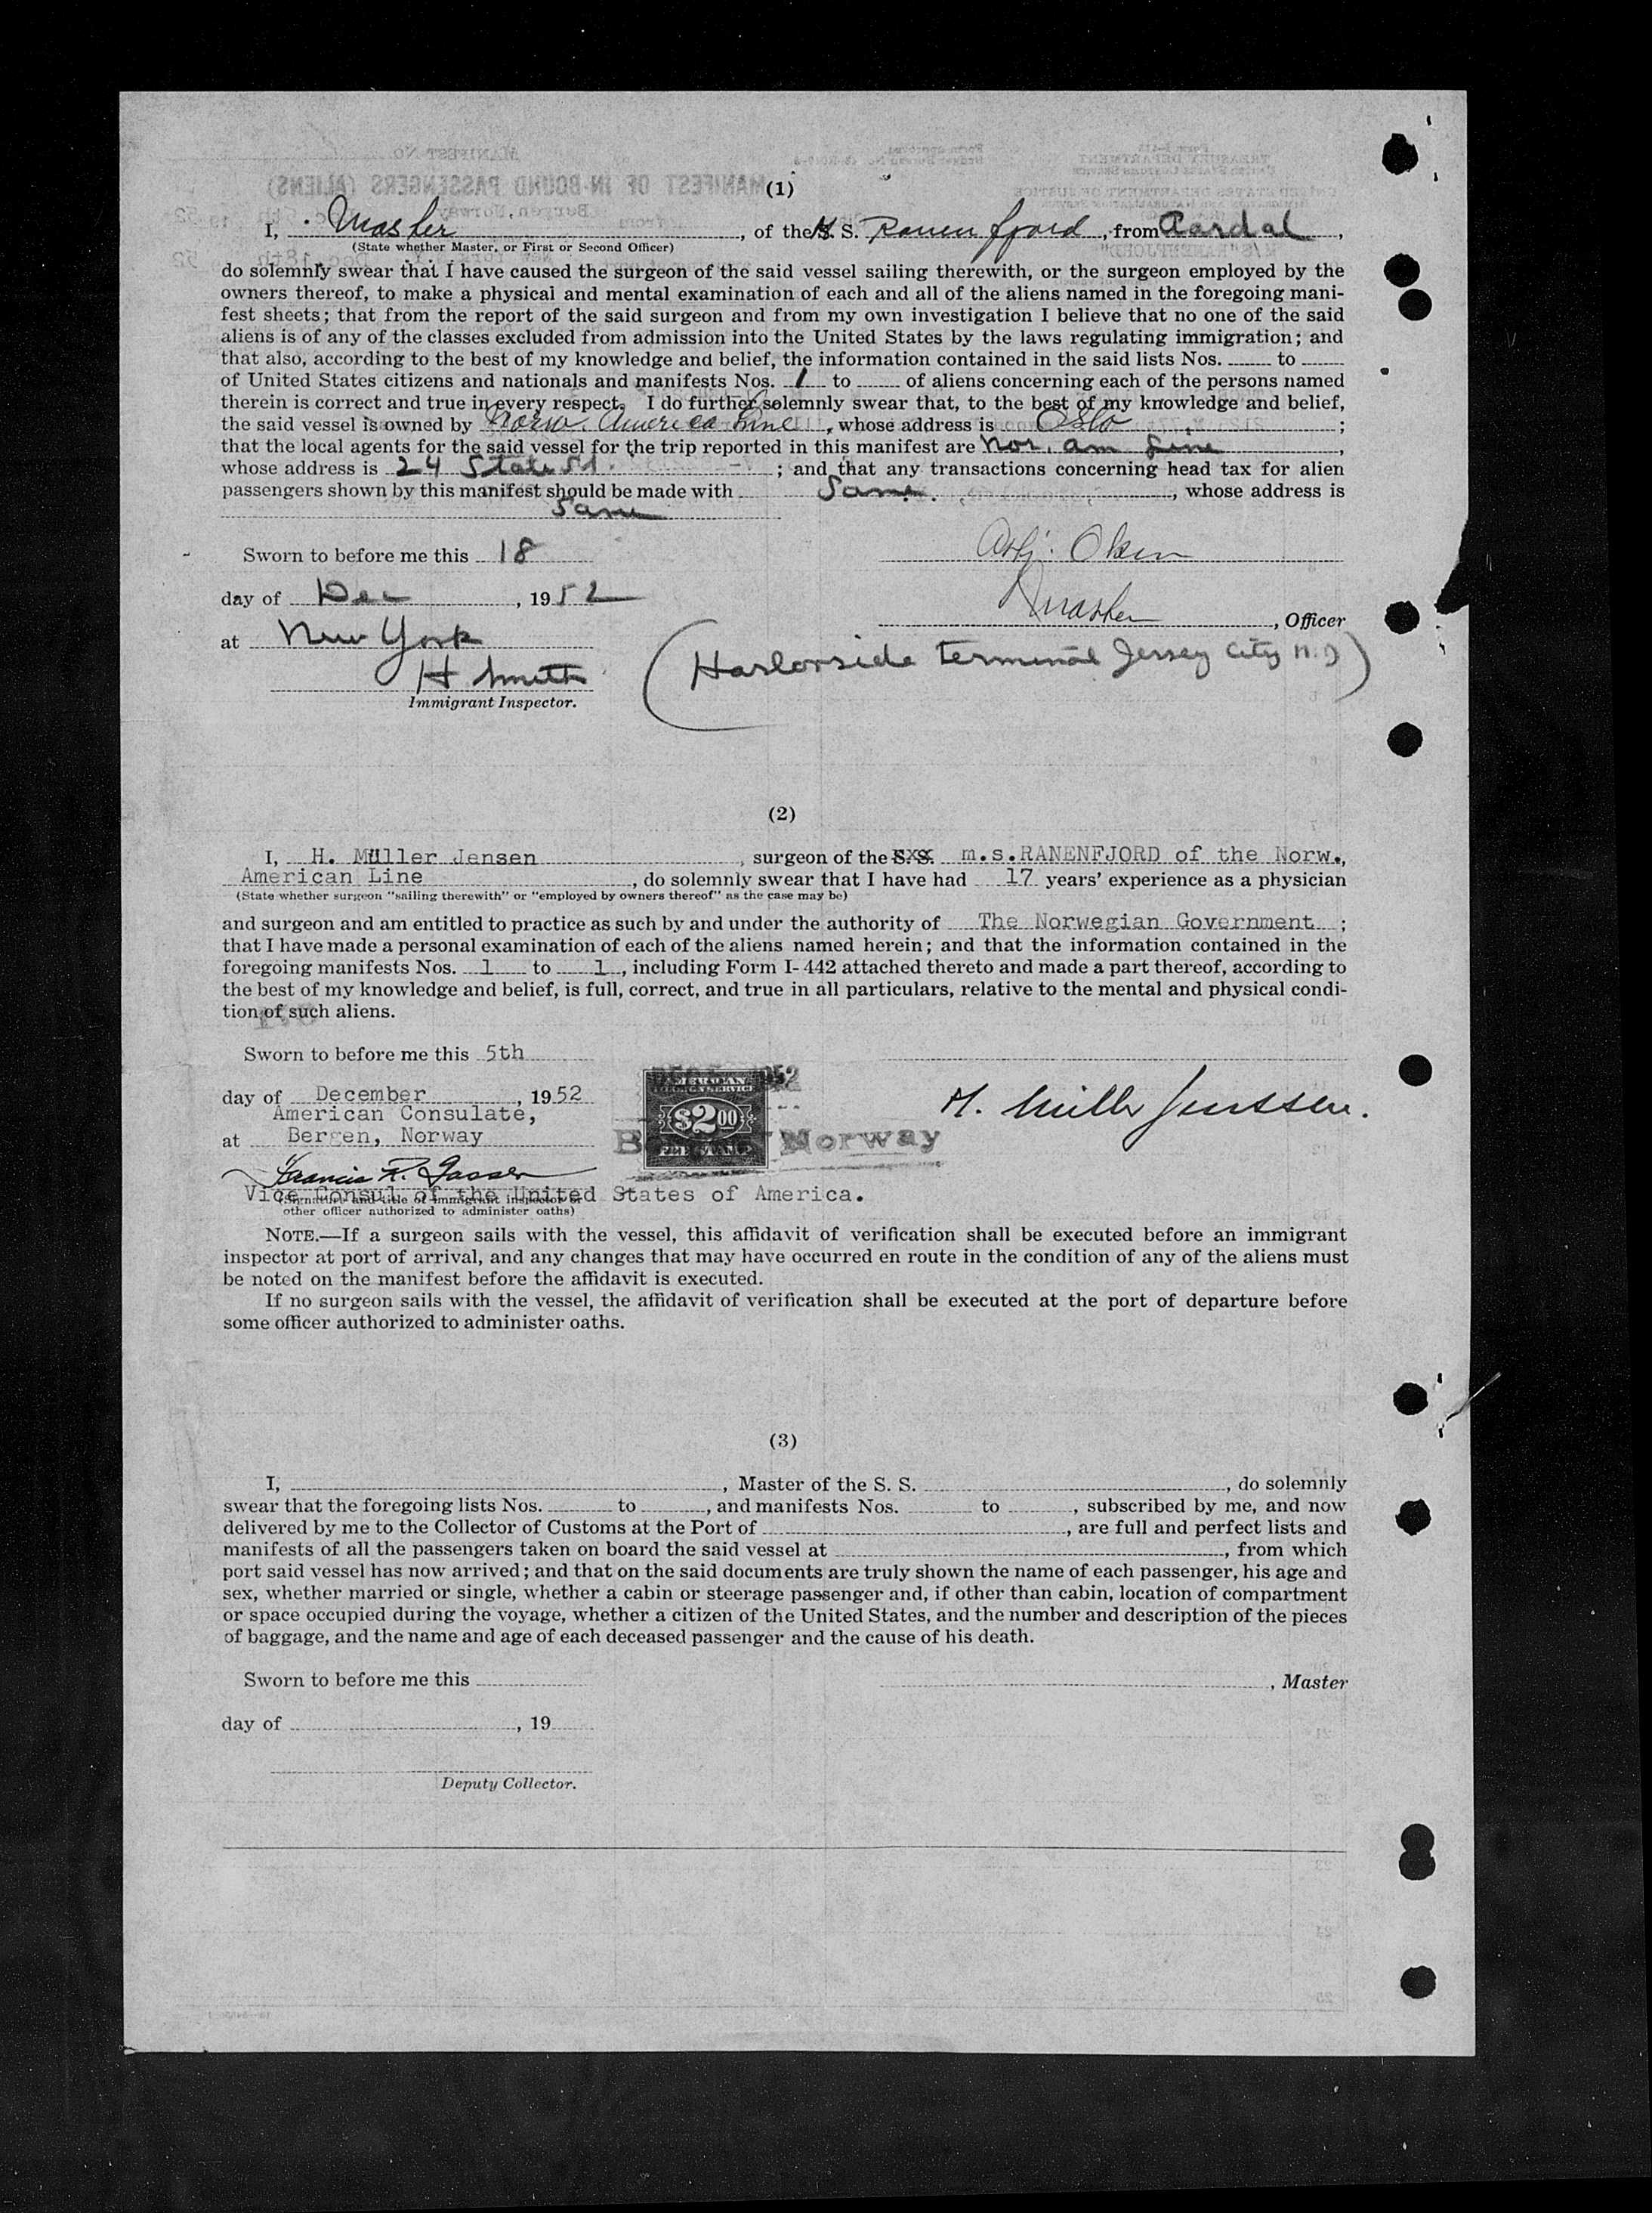 (1)
I, Master, of the M. S. Ranenfjord, from Aardal,
(State whether Master, or First or Second Officer)
do solemnly swear that I have caused the surgeon of the said vessel sailing therewith, or the surgeon employed by the
owners thereof, to make a physical and mental examination of each and all of the aliens named in the foregoing mani-
fest sheets; that from the report of the said surgeon and from my own investigation I believe that no one of the said
aliens is of any of the classes excluded from admission into the United States by the laws regulating immigration; and
that also, according to the best of my knowledge and belief, the information contained in the said lists Nos. to
of United States citizens and nationals and manifests Nos. 1 to of aliens concerning each of the persons named
therein is correct and true in every respect. I do further solemnly swear that, to the best of my knowledge and belief,
the said vessel is owned by Norw. America Line, whose address is Oslo;
that the local agents for the said vessel for the trip reported in this manifest are Nor. Am Line,
whose address is 24 State St.; and that any transactions concerning head tax for alien
passengers shown by this manifest should be made with Same., whose address is
Same
Sworn to before me this 18
Asbj. Olsen
day of Dec, 1952
Master, Officer
at New York
(Harborside Terminal Jersey City N.J)
H Smith
Immigrant Inspector.
(2)
I, H. Müller Jensen, surgeon of the S. S. m.s.RANENFJORD of the Norw.,
American Line, do solemnly swear that I have had 17 years' experience as a physician
(State whether surgeon "sailing therewith" or "employed by owners thereof" as the case may be)
and surgeon and am entitled to practice as such by and under the authority of The Norwegian Government;
that I have made a personal examination of each of the aliens named herein; and that the information contained in the
foregoing manifests Nos. 1 to 1, including Form I-442 attached thereto and made a part thereof, according to
the best of my knowledge and belief, is full, correct, and true in all particulars, relative to the mental and physical condi-
tion of such aliens.
Sworn to before me this 5th
day of December, 1952
American Consulate,
at Bergen, Norway
AMERICAN
FOREIGN SERVICE
$2.00
FEE STAMP
Norway
Francis R. Gasser
Vice Consul of the United States of America.
(Signature and title of immigrant inspector or
other officer authorized to administer oaths)
NOTE.—If a surgeon sails with the vessel, this affidavit of verification shall be executed before an immigrant
inspector at port of arrival, and any changes that may have occurred en route in the condition of any of the aliens must
be noted on the manifest before the affidavit is executed.
If no surgeon sails with the vessel, the affidavit of verification shall be executed at the port of departure before
some officer authorized to administer oaths.
(3)
I, , Master of the S. S. , do solemnly
swear that the foregoing lists Nos. to , and manifests Nos. to , subscribed by me, and now
delivered by me to the Collector of Customs at the Port of , are full and perfect lists and
manifests of all the passengers taken on board the said vessel at , from which
port said vessel has now arrived; and that on the said documents are truly shown the name of each passenger, his age and
sex, whether married or single, whether a cabin or steerage passenger and, if other than cabin, location of compartment
or space occupied during the voyage, whether a citizen of the United States, and the number and description of the pieces
of baggage, and the name and age of each deceased passenger and the cause of his death.
Sworn to before me this
, Master
day of , 19
Deputy Collector.